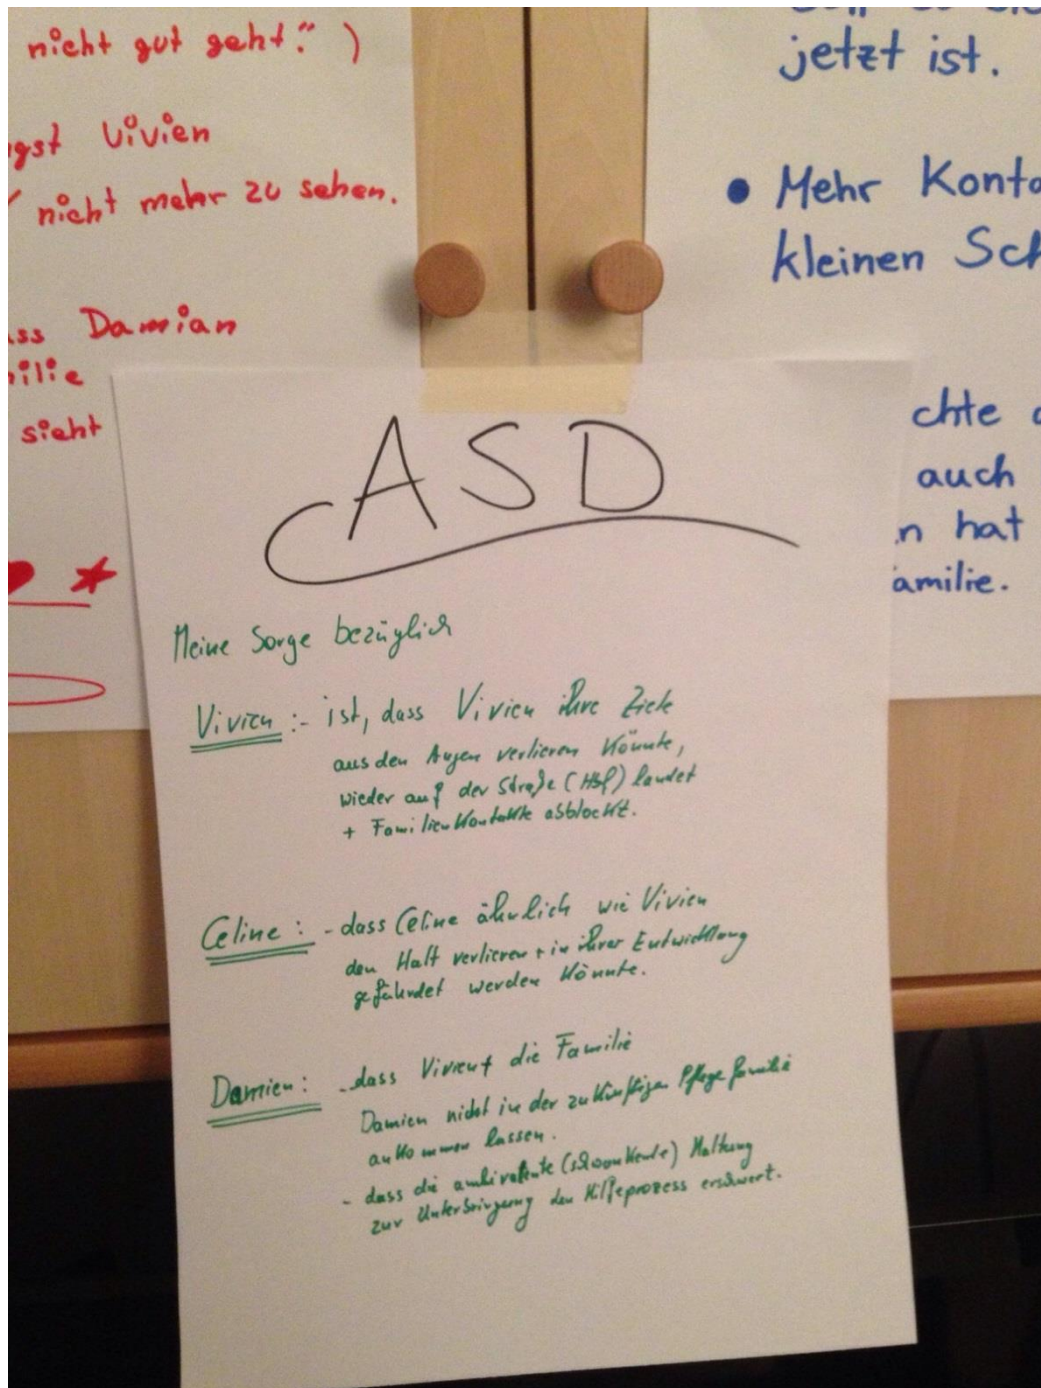 nicht gut geht." )
gst Vivien
nicht mehr zu sehen.
ss Damian
ilie
sieht
jetzt ist.
• Mehr Konta
kleinen Sch
chte
auch
n hat
amilie.
ASD
Meine Sorge bezüglich
Vivien :- ist, dass Vivien ihre Ziele
aus den Augen verlieren könnte,
wieder auf der Straße (Hbf) landet
+ Familienkontakte abblockt.
Celine : - dass Celine ähnlich wie Vivien
den Halt verlieren + in ihrer Entwicklung
gefährdet werden könnte.
Damien : - dass Vivien + die Familie
Damien nicht in der zukünftigen Pflegefamilie
ankommen lassen.
- dass die ambivalente (schwankende) Haltung
zur Unterbringung den Hilfeprozess erschwert.